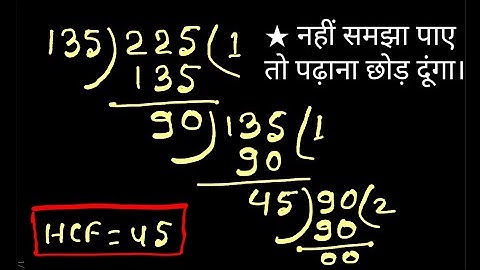 135)225(1
★ नहीं समझा पाए
तो पढ़ाना छोड़ दूंगा।
135
90)135(1
90
45)90(2
90
00
HCF = 45